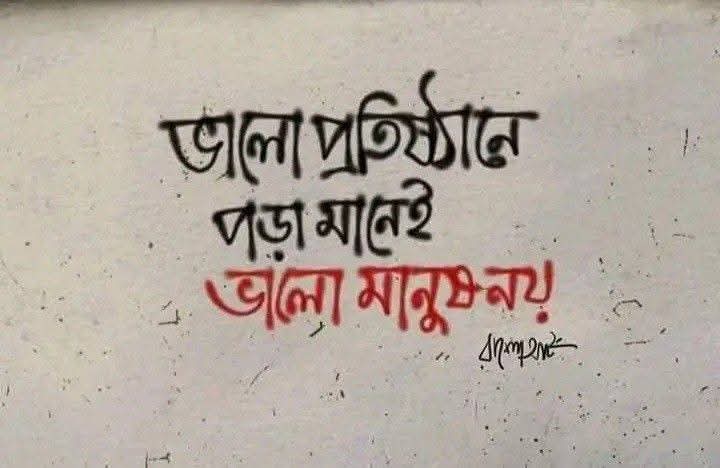 ভালো প্রতিষ্ঠানে
পড়া মানেই
ভালো মানুষ নয়